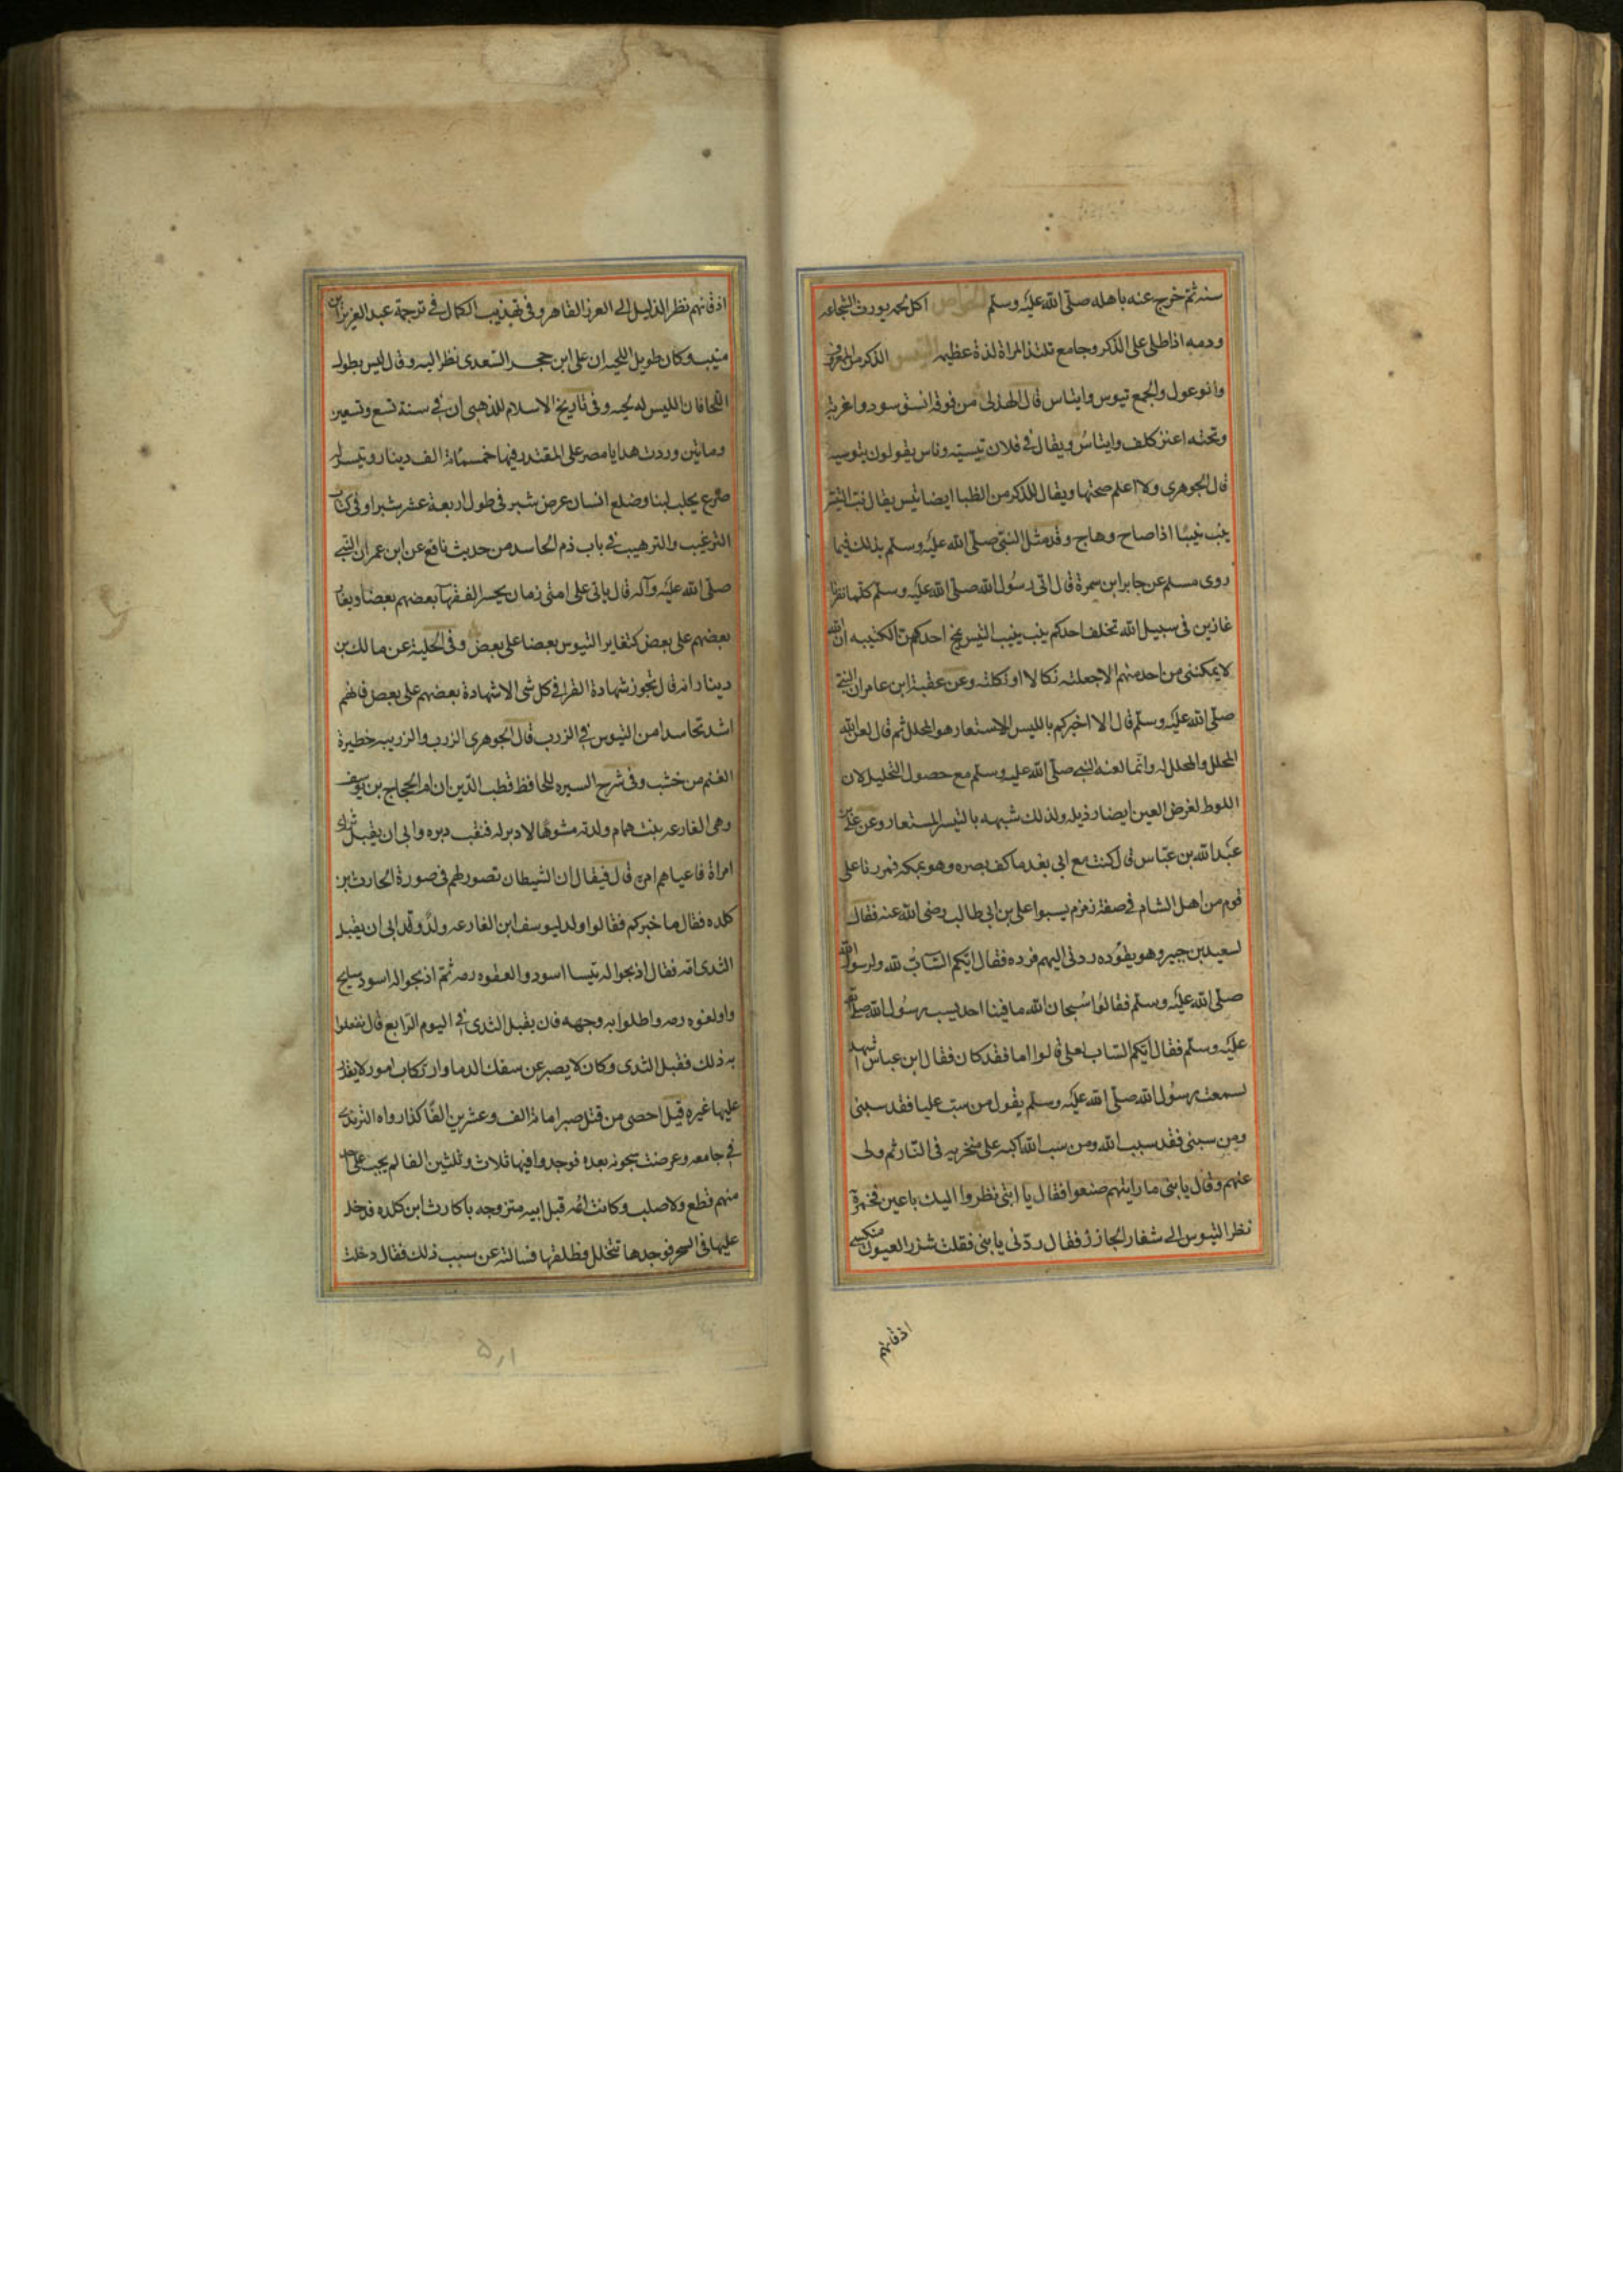 سنه ثم خرج عنه باهله صلى الله عليه وسلم الخواص اكل لحمه يورث الشجاعه
ودمه اذا طلى على الذكر وجامع تلتذ المراة لذة عظيمه التيس الذكر من المعز
والوعول والجمع تيوس واتياس قال الهذلى من فوقه انسر سود واغربة
وتحته اعنز كلف واتياس ويقال فى فلان تيسيه وناس يقولون تيوسيه
قال الجوهرى ولا اعلم صحتها ويقال للذكر من الظبا ايضا تيس يقال نب التيس
ينب نبيبا اذا صاح وهاج وقد مثل النبى صلى الله عليه وسلم بذلك فيما
روى مسلم عن جابر ابن سمرة قال اتى رسول الله صلى الله عليه وسلم كلما نفرنا
غازين فى سبيل الله تخلف احدكم ينب نبيب التيس يمنح احدكم من الكثيبه ان الله
لا يمكننى من احد منهم الا جعلته نكالا او نكلته وعن عقبة ابن عامر ان النبى
صلى الله عليه وسلم قال الا اخبركم بالتيس المستعار هو المحلل ثم قال لعن الله
المحلل والمحلل له وانما لعنه النبى صلى الله عليه وسلم مع حصول التحليل لان
اللوط لغرض العين ايضا رذيله ولذلك شبهه بالتيس المستعار وعن
عبد الله بن عباس قال كنت مع ابى بعد ما كف بصره وهو بمكه فمررنا على
قوم من اهل الشام فى صفة زمزم يسبوا على بن ابى طالب رضى الله عنه فقال
لسعيد بن جبير وهو يقوده ردنى اليهم فرده فقال ايكم الساب لله ولرسول الله
صلى الله عليه وسلم فقالوا سبحان الله ما فينا احد يسب رسول الله صلى الله
عليه وسلم فقال ايكم الساب لعلى قالوا اما فقد كان فقال ابن عباس اشهد
لسمعت رسول الله صلى الله عليه وسلم يقول من سب عليا فقد سبنى
ومن سبنى فقد سب الله ومن سب الله اكبه على منخريه فى النار ثم ولى
عنهم وقال يا بنى ما رايتهم صنعوا فقال يا ابتى نظروا اليك باعين محمرة
نظر التيوس الى شفار الجازر فقال ردنى يا بنى فقلت شزر العيون منكسى
اذقانهم
اذقانهم نظر الذليل الى العزيز القاهر وفى تهذيب الكمال فى ترجمة عبد العزيز ابن
منيب وكان طويل اللحيه ان على ابن حجر السعدى نظر اليه وقال ليس بطول
اللحا فان التيس له لحيه وفى تاريخ الاسلام للذهبى ان فى سنة تسع وتسعين
ومائتين وردت هدايا مصر على المقتدر فيها خمسمائة الف دينار وتيس له
ضرع يحلب لبنا وضلع انسان عرض شبر فى طول اربعة عشر شبرا وفى كتاب
الترغيب والترهيب فى باب ذم الحاسد من حديث نافع عن ابن عمر ان النبى
صلى الله عليه وآله قال ياتى على امتى زمان يحسد الفقهآ بعضهم بعضا ويغار
بعضهم على بعض كتغاير التيوس بعضا على بعض وفى الحلية عن مالك بن
دينار انه قال تجوز شهادة القرا فى كل شى الا شهادة بعضهم على بعض فانهم
اشد تحاسدا من التيوس فى الزرب قال الجوهرى الزرب والزريبه حظيرة
الغنم من خشب وفى شرح السيره للحافظ قطب الدين ان ام الحجاج بن يوسف
وهى الفارعه بنت همام ولدته مشوها لا دبر له فنقب دبره وابى ان يقبل ثدى
امراة فاعياهم امره قال فيقال ان الشيطان تصور لهم فى صورة الحارث بن
كلده فقال ما خبركم فقالوا ولد ليوسف ابن الفارعه ولد وقد ابى ان يقبل
الثدى امه فقال اذبحوا له تيسا اسود والعقوه دمه ثم اذبحوا له اسود سالح
واولغوه دمه واطلوا به وجهه فان يقبل الثدى فى اليوم الرابع قال ففعلوا
به ذلك فقبل الثدى وكان لا يصبر عن سفك الدما وارتكاب امور لا يقدر
عليها غيره قيل احصى من قتل صبرا مائة الف وعشرين الفا كذا رواه الترمذى
فى جامعه وعرضت سجونه بعده فوجدوا فيها ثلاث وثلثين الفا لم يجب على احد
منهم قطع ولا صلب وكانت امه قبل ابيه متزوجه بالحارث ابن كلده فدخل
عليها فى السحر فوجدها تتخلل فطلقها فسالته عن سبب ذلك فقال دخلت